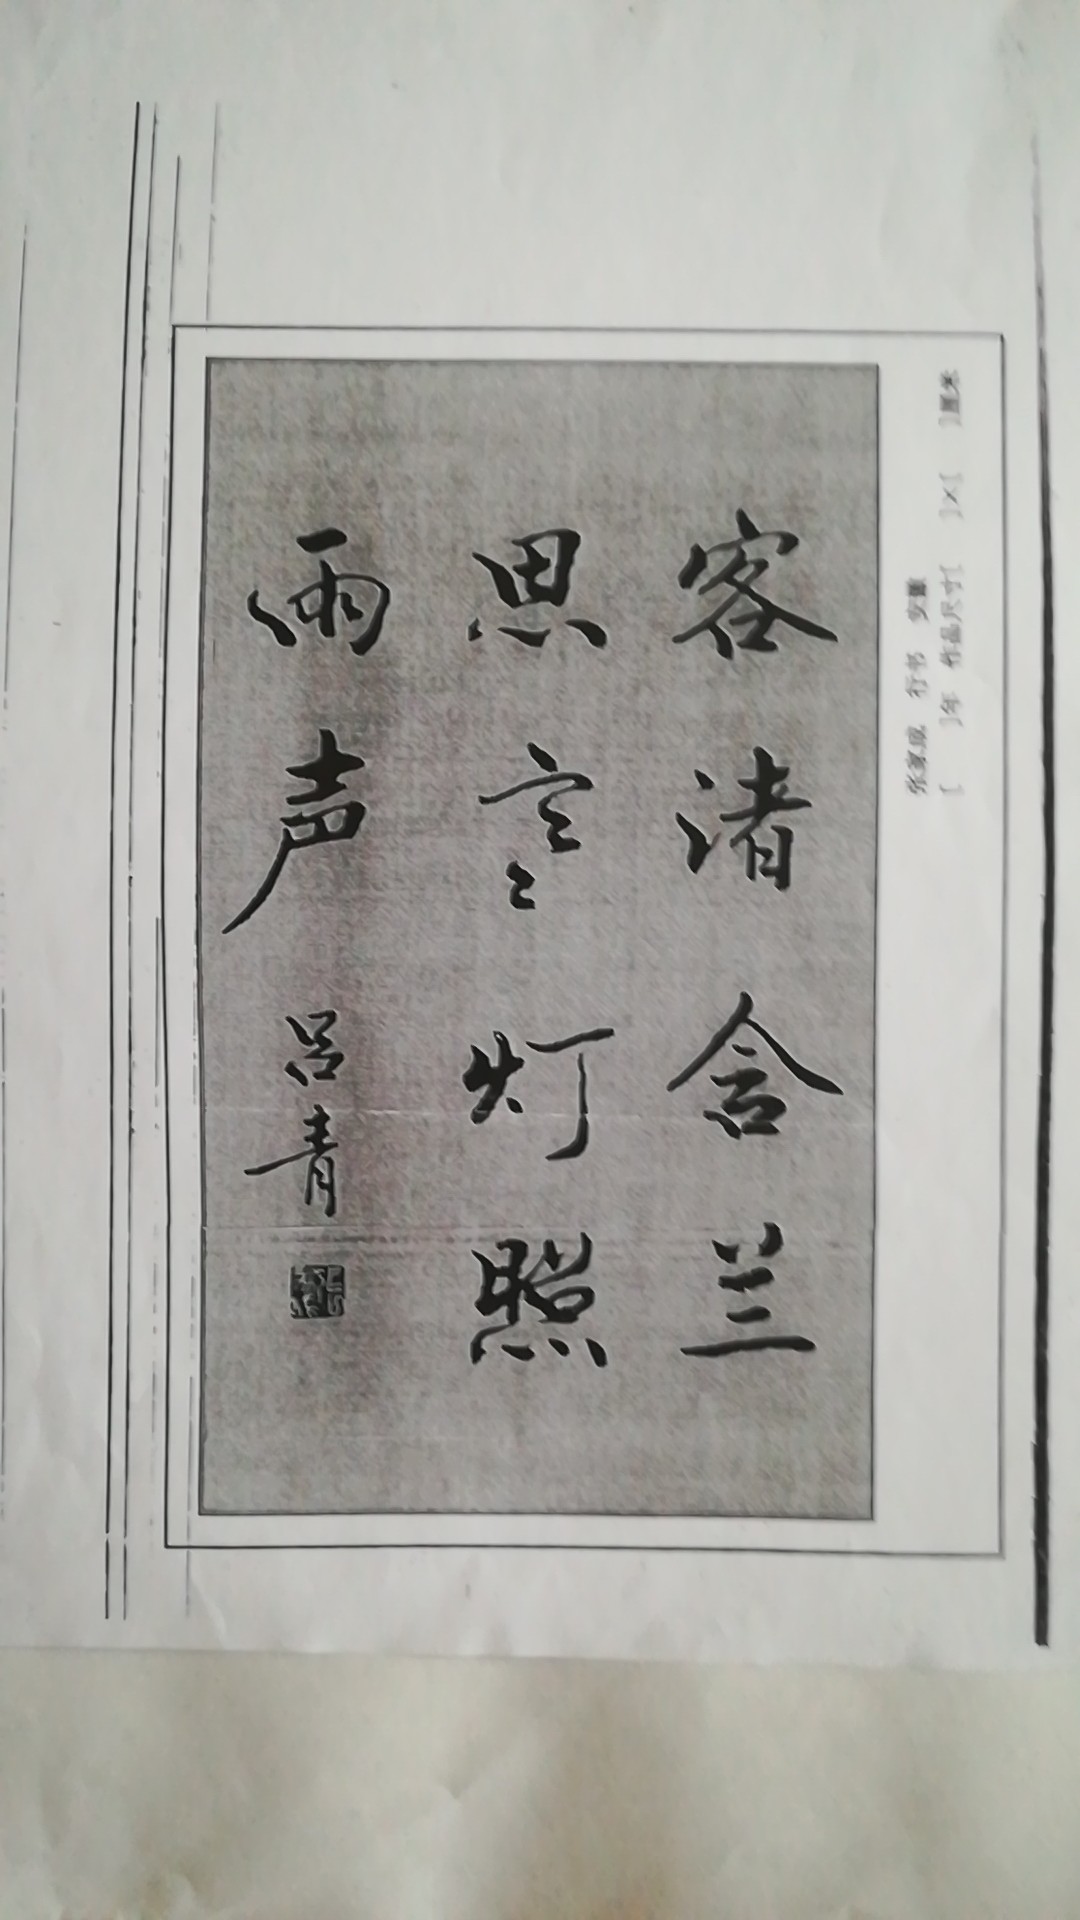 客渚含兰
思寒灯照
雨声 吕青
张家成 行书 安徽
[ ]年 作品尺寸[ ]×[ ]厘米